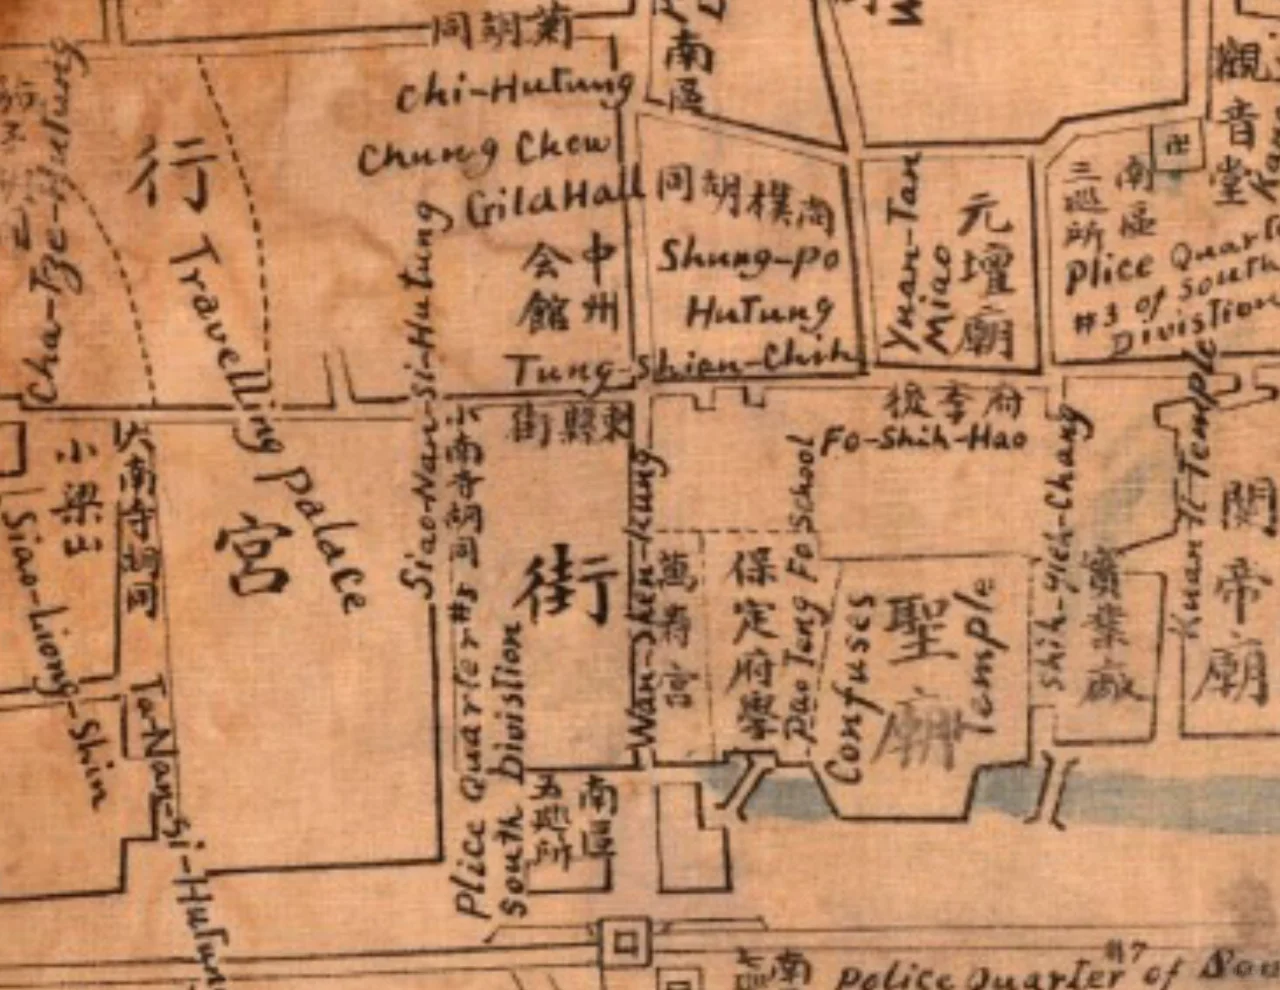 同胡菊
Chi-Hutung
Chung Chow
Gild Hall
会中
館州
南區
同胡樸尚
Shung-po
Hutung
Tung-Shian-Chih
街縣東
Yuan-Tan
Miao
元壇廟
卍
南區
三巡所
Plice Quart
#3 of South
Divistion
觀音堂
Cha-Tze-Hutung
行
宮
Travelling Palace
Siao-Nan-Si-Hutung
小南寺胡同
大南寺胡同
Ta-Nan-Si-Hutun
小梁
Siao-Liong-Shin
Plice Quarter #5
South Divistion
街
Wan-Shen-kung
萬壽宮
保定府學
Pao Teng Fo School
後李府
Fo-Shih-Hao
Confuses
Temple
聖廟
Shih-Yieh-Chang
實業廠
Kuan-Ti-Temple
關帝廟
南區
五巡所
南
Police Quarter #7 of Sou